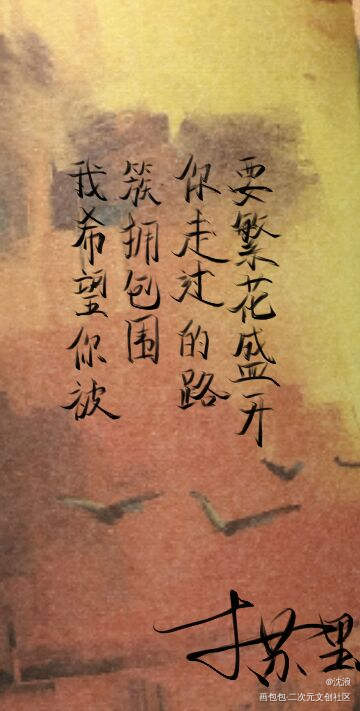 我希望你被
簇拥包围
你走过的路
要繁花盛开
木苏里
@沈浪
画包包·二次元文创社区